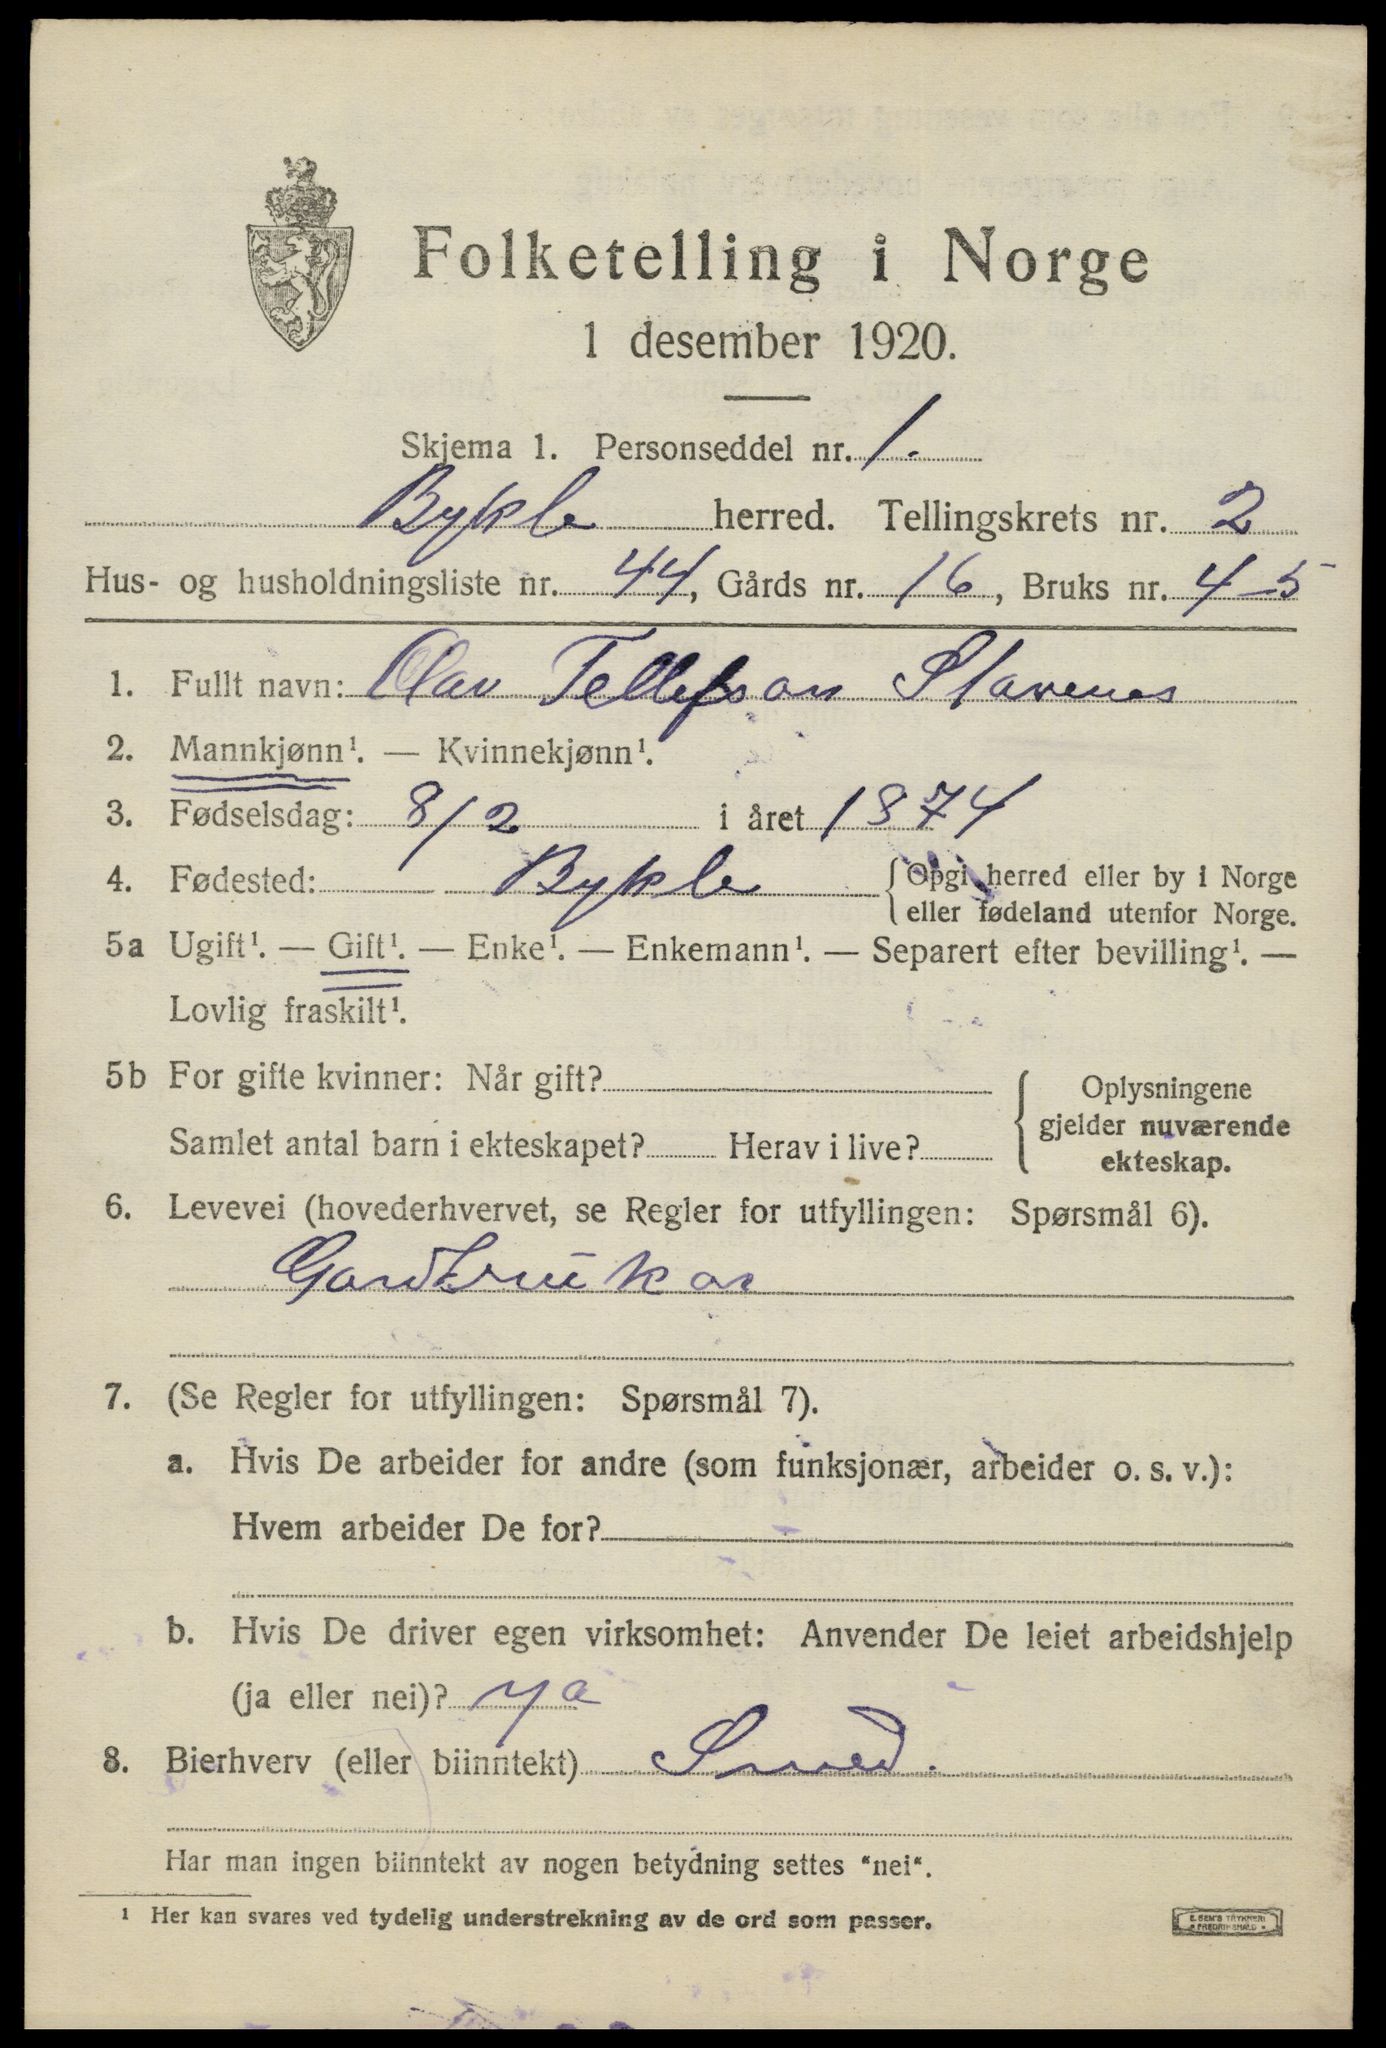 Folketelling i Norge
1 desember 1920.
Skjema 1. Personseddel nr. 1.
Bykle herred. Tellingskrets nr. 2
Hus- og husholdningsliste nr. 44, Gårds nr. 16, Bruks nr. 4-5
1. Fullt navn: Olav Tellefson Stavenes
2. Mannkjønn¹. — Kvinnekjønn¹.
3. Fødselsdag: 8/2 i året 1874
4. Fødested: Bykle {Opgi herred eller by i Norge
eller fødeland utenfor Norge.
5a Ugift¹. — Gift¹. — Enke¹. — Enkemann¹. — Separert efter bevilling¹. —
Lovlig fraskilt¹.
5b For gifte kvinner: Når gift? { Oplysningene
gjelder nuværende
Samlet antal barn i ekteskapet? Herav i live?
ekteskap.
6. Levevei (hovederhvervet, se Regler for utfyllingen: Spørsmål 6).
Gardbrukar
7. (Se Regler for utfyllingen: Spørsmål 7).
a. Hvis De arbeider for andre (som funksjonær, arbeider o. s. v.):
Hvem arbeider De for?
b. Hvis De driver egen virksomhet: Anvender De leiet arbeidshjelp
(ja eller nei)? ya
8. Bierhverv (eller biinntekt) Smed.
Har man ingen biinntekt av nogen betydning settes "nei".
¹ Her kan svares ved tydelig understrekning av de ord som passer.
E. SEM'S TRYKKERI
FREDRIKSHALD